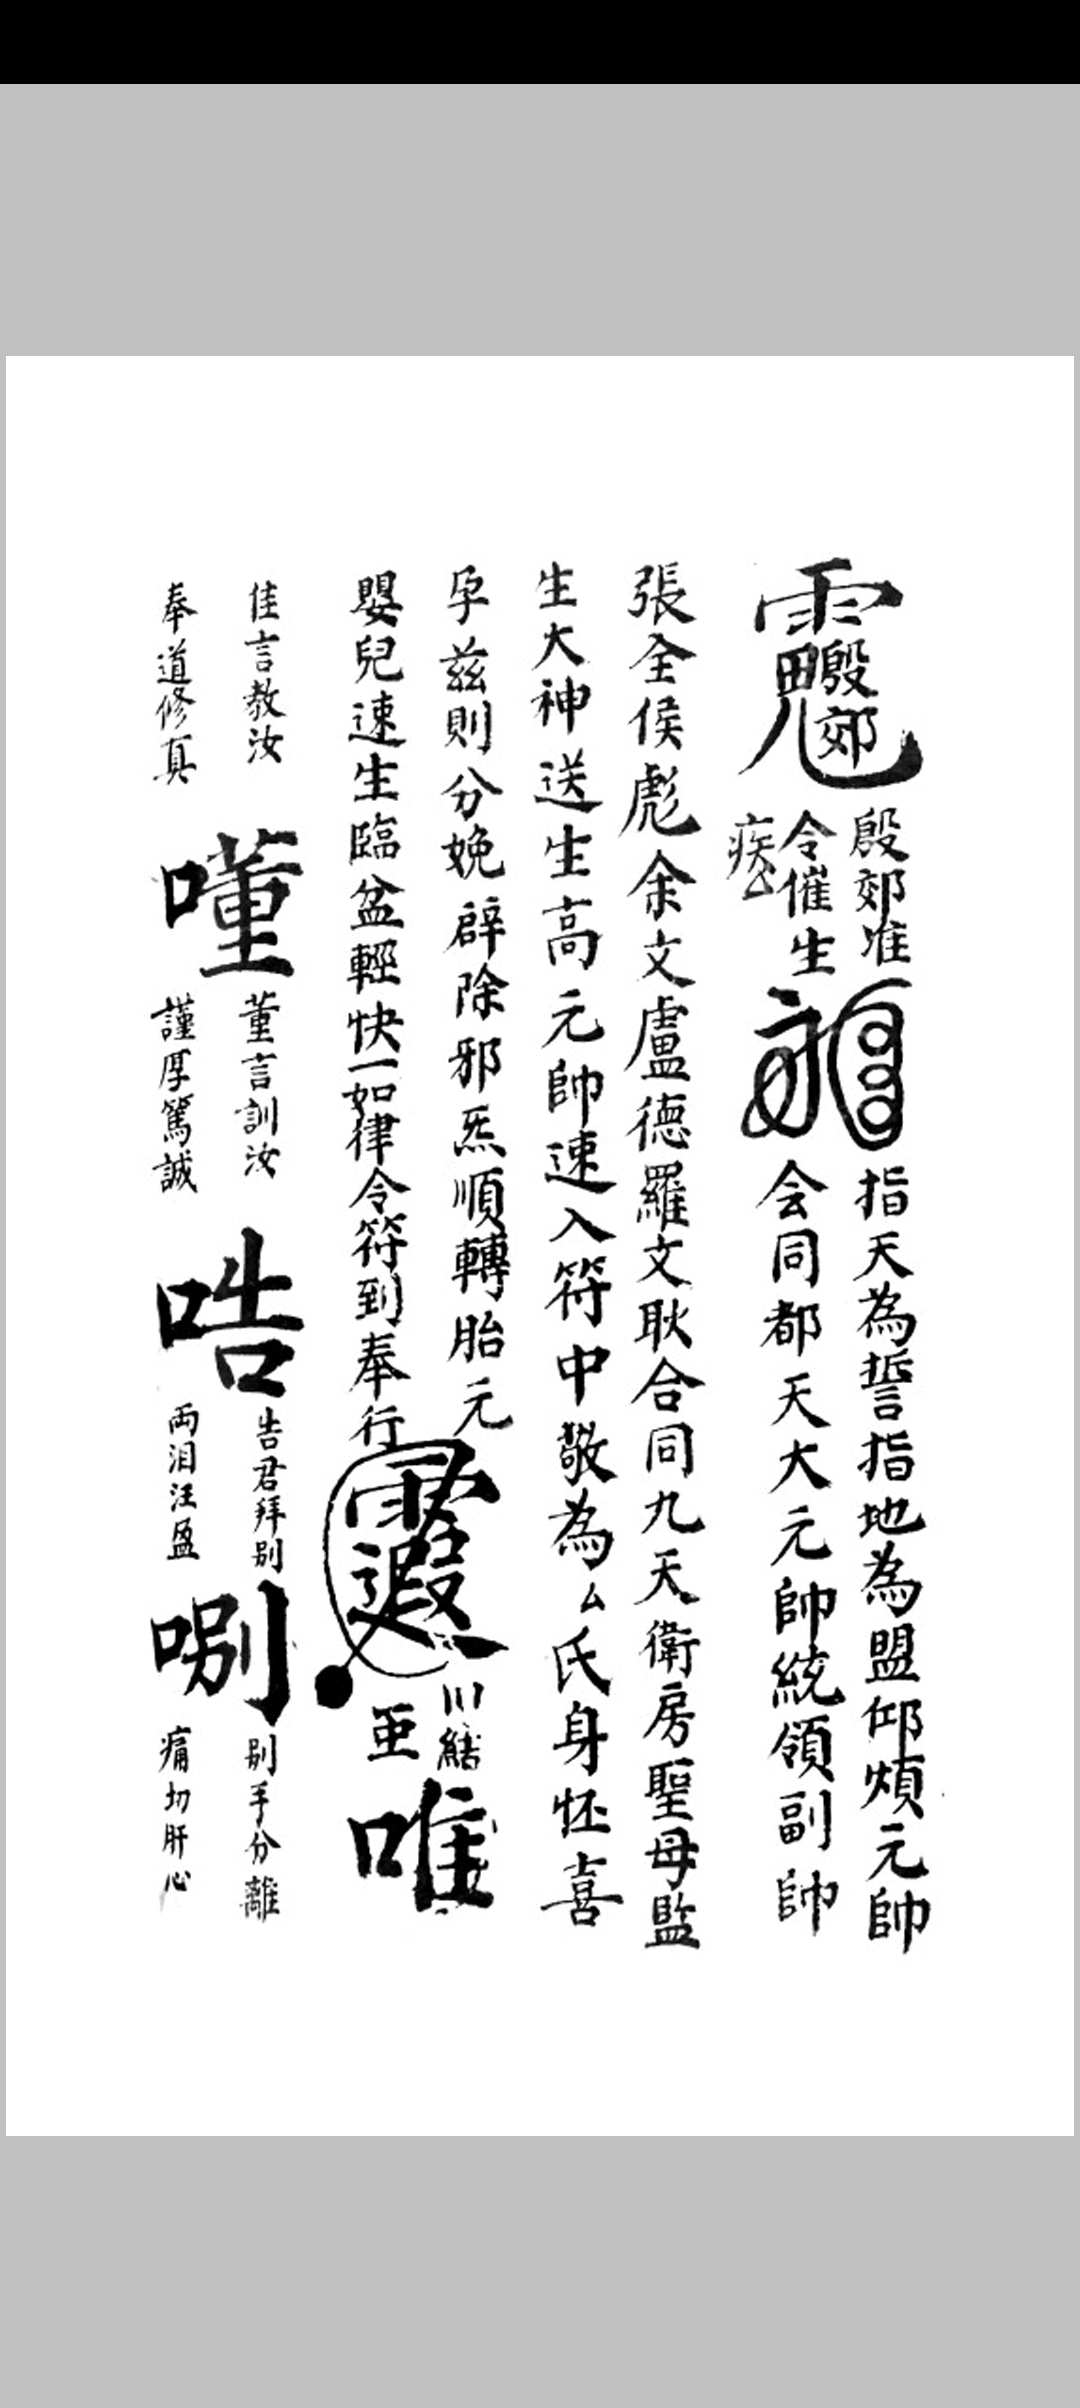 殷郊
殷郊准
令催生
疾
指天為誓指地為盟仰煩元帥
会同都天大元帥統領副帥
張全侯彪余文盧德羅文耿合同九天衛房聖母監
生大神送生高元帥速入符中敬為厶氏身怀喜
孕兹則分娩辟除邪炁順轉胎元
嬰兒速生臨盆輕快一如律令符到奉行
亚
唯
佳言教汝
奉道修真
嗤
董言訓汝
謹厚篤誠
哠
告君拜别
両泪汪盈
唎
别手分離
痛切肝心